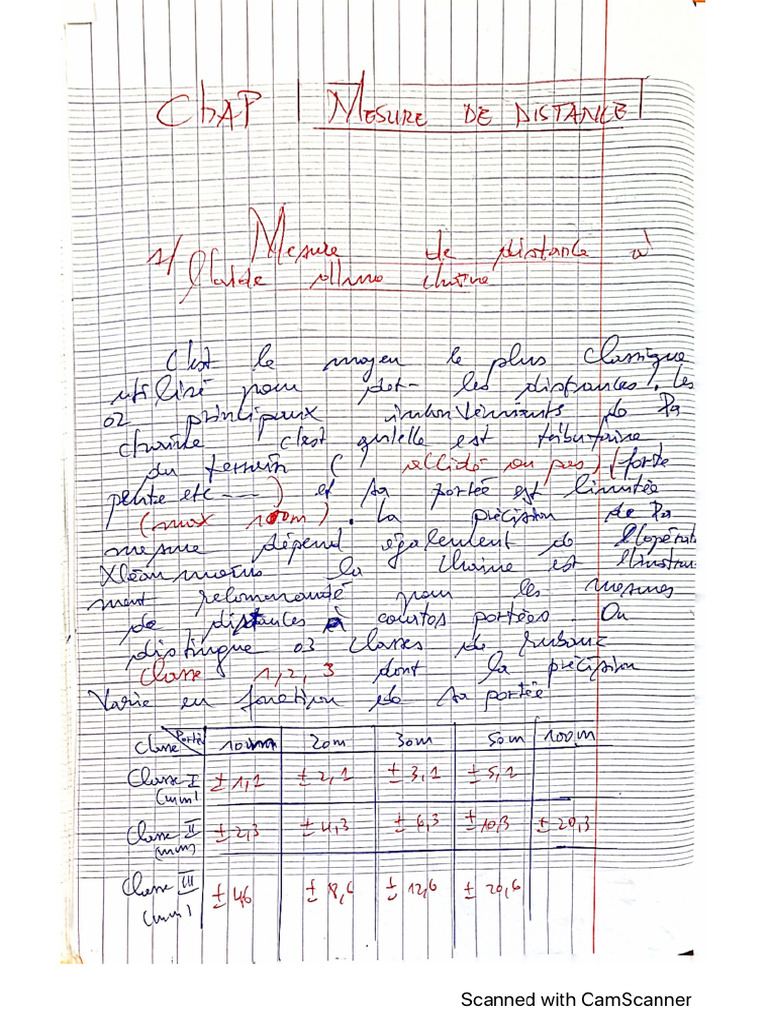 ChAP | MESURE DE DISTANCE
1/ Mesure de distance à
l'aide d'une chaîne
C'est le moyen le plus classique
utilisé pour det- les distances. Les
02 principaux inconvénients de la
chaîne c'est qu'elle est tributaire
du terrain ( accidé ou pas) (forte
pente etc ----) et sa portée est limitée
(max 100m). La précision de la
mesure dépend également de l'opérat
Néanmoins la chaine est l'instru
ment recommandé pour les mesures
de distances à courtes portées. On
distingue 03 classes de rubans
Classe 1, 2, 3 dont la précision
Varie en fonction de sa portée
Classe Porté 10m 20m 30m 50m 100m
Classe I (mm) ±1,1 ±2,1 ±3,1 ±5,1
Classe II (mm) ±2,3 ±4,3 ±6,3 ±10,3 ±20,3
Classe III (mm) ±4,6 ±8,6 ±12,6 ±20,6
Scanned with CamScanner